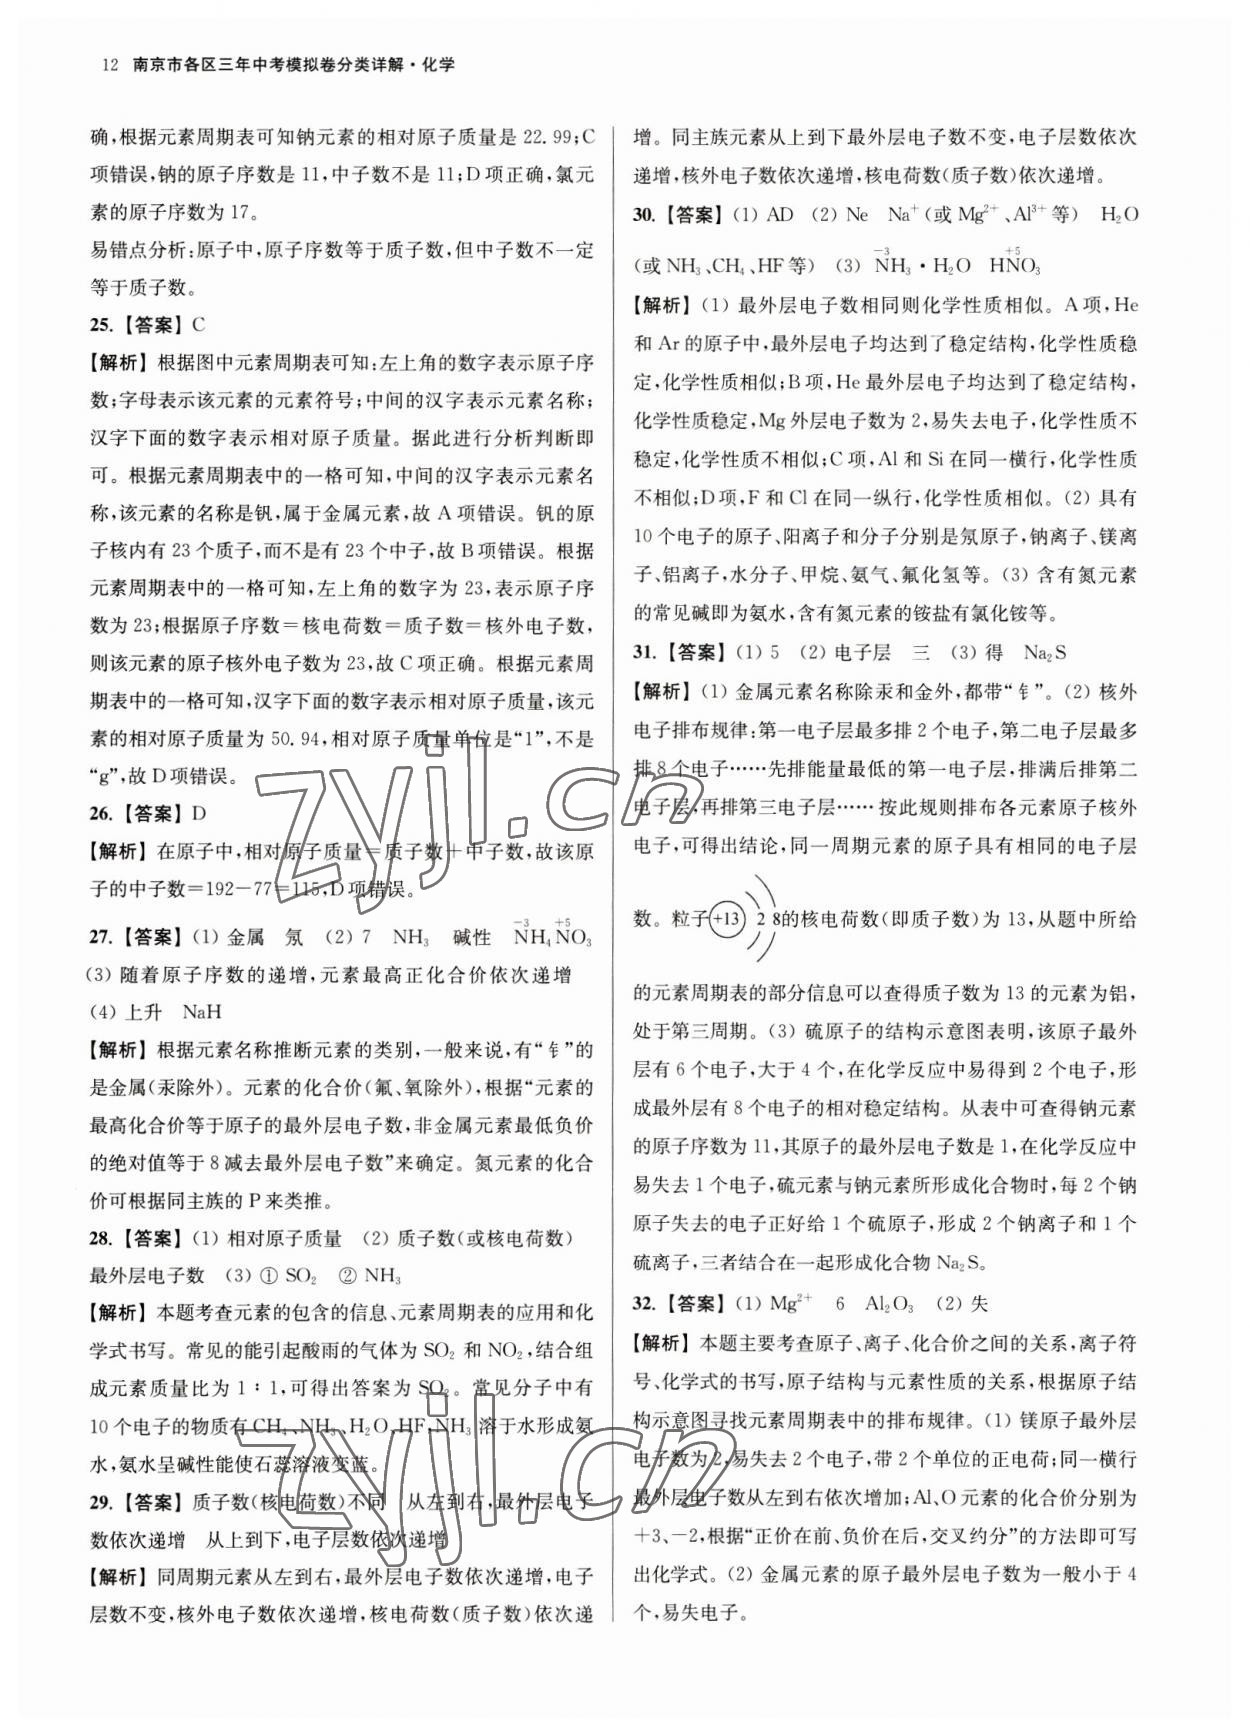 12 南京市各区三年中考模拟卷分类详解·化学
确,根据元素周期表可知钠元素的相对原子质量是 22.99;C
项错误,钠的原子序数是 11,中子数不是 11;D 项正确,氯元
素的原子序数为 17。
易错点分析:原子中,原子序数等于质子数,但中子数不一定
等于质子数。
25.【答案】C
【解析】根据图中元素周期表可知:左上角的数字表示原子序
数;字母表示该元素的元素符号;中间的汉字表示元素名称;
汉字下面的数字表示相对原子质量。据此进行分析判断即
可。根据元素周期表中的一格可知,中间的汉字表示元素名
称,该元素的名称是钒,属于金属元素,故 A 项错误。钒的原
子核内有 23 个质子,而不是有 23 个中子,故 B 项错误。根据
元素周期表中的一格可知,左上角的数字为 23,表示原子序
数为 23;根据原子序数=核电荷数=质子数=核外电子数,
则该元素的原子核外电子数为 23,故 C 项正确。根据元素周
期表中的一格可知,汉字下面的数字表示相对原子质量,该元
素的相对原子质量为 50.94,相对原子质量单位是“1”,不是
“g”,故 D 项错误。
26.【答案】D
【解析】在原子中,相对原子质量=质子数+中子数,故该原
子的中子数=192-77=115,D 项错误。
27.【答案】(1) 金属 氖 (2) 7 NH₃ 碱性 N⁻³H₄N⁺⁵O₃
(3) 随着原子序数的递增,元素最高正化合价依次递增
(4) 上升 NaH
【解析】根据元素名称推断元素的类别,一般来说,有“钅”的
是金属(汞除外)。元素的化合价(氟、氧除外),根据“元素的
最高化合价等于原子的最外层电子数,非金属元素最低负价
的绝对值等于 8 减去最外层电子数”来确定。氮元素的化合
价可根据同主族的 P 来类推。
28.【答案】(1) 相对原子质量 (2) 质子数(或核电荷数)
最外层电子数 (3) ① SO₂ ② NH₃
【解析】本题考查元素的包含的信息、元素周期表的应用和化
学式书写。常见的能引起酸雨的气体为 SO₂ 和 NO₂,结合组
成元素质量比为 1∶1,可得出答案为 SO₂。常见分子中有
10 个电子的物质有 CH₄、NH₃、H₂O、HF,NH₃ 溶于水形成氨
水,氨水呈碱性能使石蕊溶液变蓝。
29.【答案】质子数(核电荷数)不同 从左到右,最外层电子
数依次递增 从上到下,电子层数依次递增
【解析】同周期元素从左到右,最外层电子数依次递增,电子
层数不变,核外电子数依次递增,核电荷数(质子数)依次递
增。同主族元素从上到下最外层电子数不变,电子层数依次
递增,核外电子数依次递增,核电荷数(质子数)依次递增。
30.【答案】(1) AD (2) Ne Na⁺(或 Mg²⁺、Al³⁺等) H₂O
(或 NH₃、CH₄、HF 等) (3) N⁻³H₃·H₂O HN⁺⁵O₃
【解析】(1) 最外层电子数相同则化学性质相似。A 项,He
和 Ar 的原子中,最外层电子均达到了稳定结构,化学性质稳
定,化学性质相似;B 项,He 最外层电子均达到了稳定结构,
化学性质稳定,Mg 外层电子数为 2,易失去电子,化学性质不
稳定,化学性质不相似;C 项,Al 和 Si 在同一横行,化学性质
不相似;D 项,F 和 Cl 在同一纵行,化学性质相似。(2) 具有
10 个电子的原子、阳离子和分子分别是氖原子,钠离子、镁离
子、铝离子,水分子、甲烷、氨气、氟化氢等。(3) 含有氮元素
的常见碱即为氨水,含有氮元素的铵盐有氯化铵等。
31.【答案】(1) 5 (2) 电子层 三 (3) 得 Na₂S
【解析】(1) 金属元素名称除汞和金外,都带“钅”。(2) 核外
电子排布规律:第一电子层最多排 2 个电子,第二电子层最多
排 8 个电子……先排能量最低的第一电子层,排满后排第二
电子层,再排第三电子层……按此规则排布各元素原子核外
电子,可得出结论,同一周期元素的原子具有相同的电子层
数。粒子 +13 2 8 的核电荷数(即质子数)为 13,从题中所给
的元素周期表的部分信息可以查得质子数为 13 的元素为铝,
处于第三周期。(3) 硫原子的结构示意图表明,该原子最外
层有 6 个电子,大于 4 个,在化学反应中易得到 2 个电子,形
成最外层有 8 个电子的相对稳定结构。从表中可查得钠元素
的原子序数为 11,其原子的最外层电子数是 1,在化学反应中
易失去 1 个电子,硫元素与钠元素所形成化合物时,每 2 个钠
原子失去的电子正好给 1 个硫原子,形成 2 个钠离子和 1 个
硫离子,三者结合在一起形成化合物 Na₂S。
32.【答案】(1) Mg²⁺ 6 Al₂O₃ (2) 失
【解析】本题主要考查原子、离子、化合价之间的关系,离子符
号、化学式的书写,原子结构与元素性质的关系,根据原子结
构示意图寻找元素周期表中的排布规律。(1) 镁原子最外层
电子数为 2,易失去 2 个电子,带 2 个单位的正电荷;同一横行
最外层电子数从左到右依次增加;Al、O 元素的化合价分别为
+3、-2,根据“正价在前、负价在后,交叉约分”的方法即可写
出化学式。(2) 金属元素的原子最外层电子数为一般小于 4
个,易失电子。
zyjl.cn
zyjl.cn